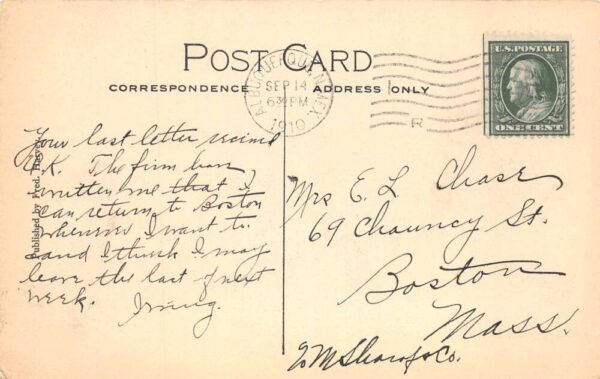 POST CARD
CORRESPONDENCE
ADDRESS ONLY
ALBUQUERQUE, N. MEX.
SEP 14
630 PM
1910
R
U.S. POSTAGE
ONE CENT
Published by Fred. Harvey.
Your last letter received
O.K. The firm have
written me that I
can return to Boston
whenever I want to.
and I think I may
leave the last of next
week.
Irving.
Mrs E. L. Chase
69 Chauncy St.
Boston
Mass.
& Co.